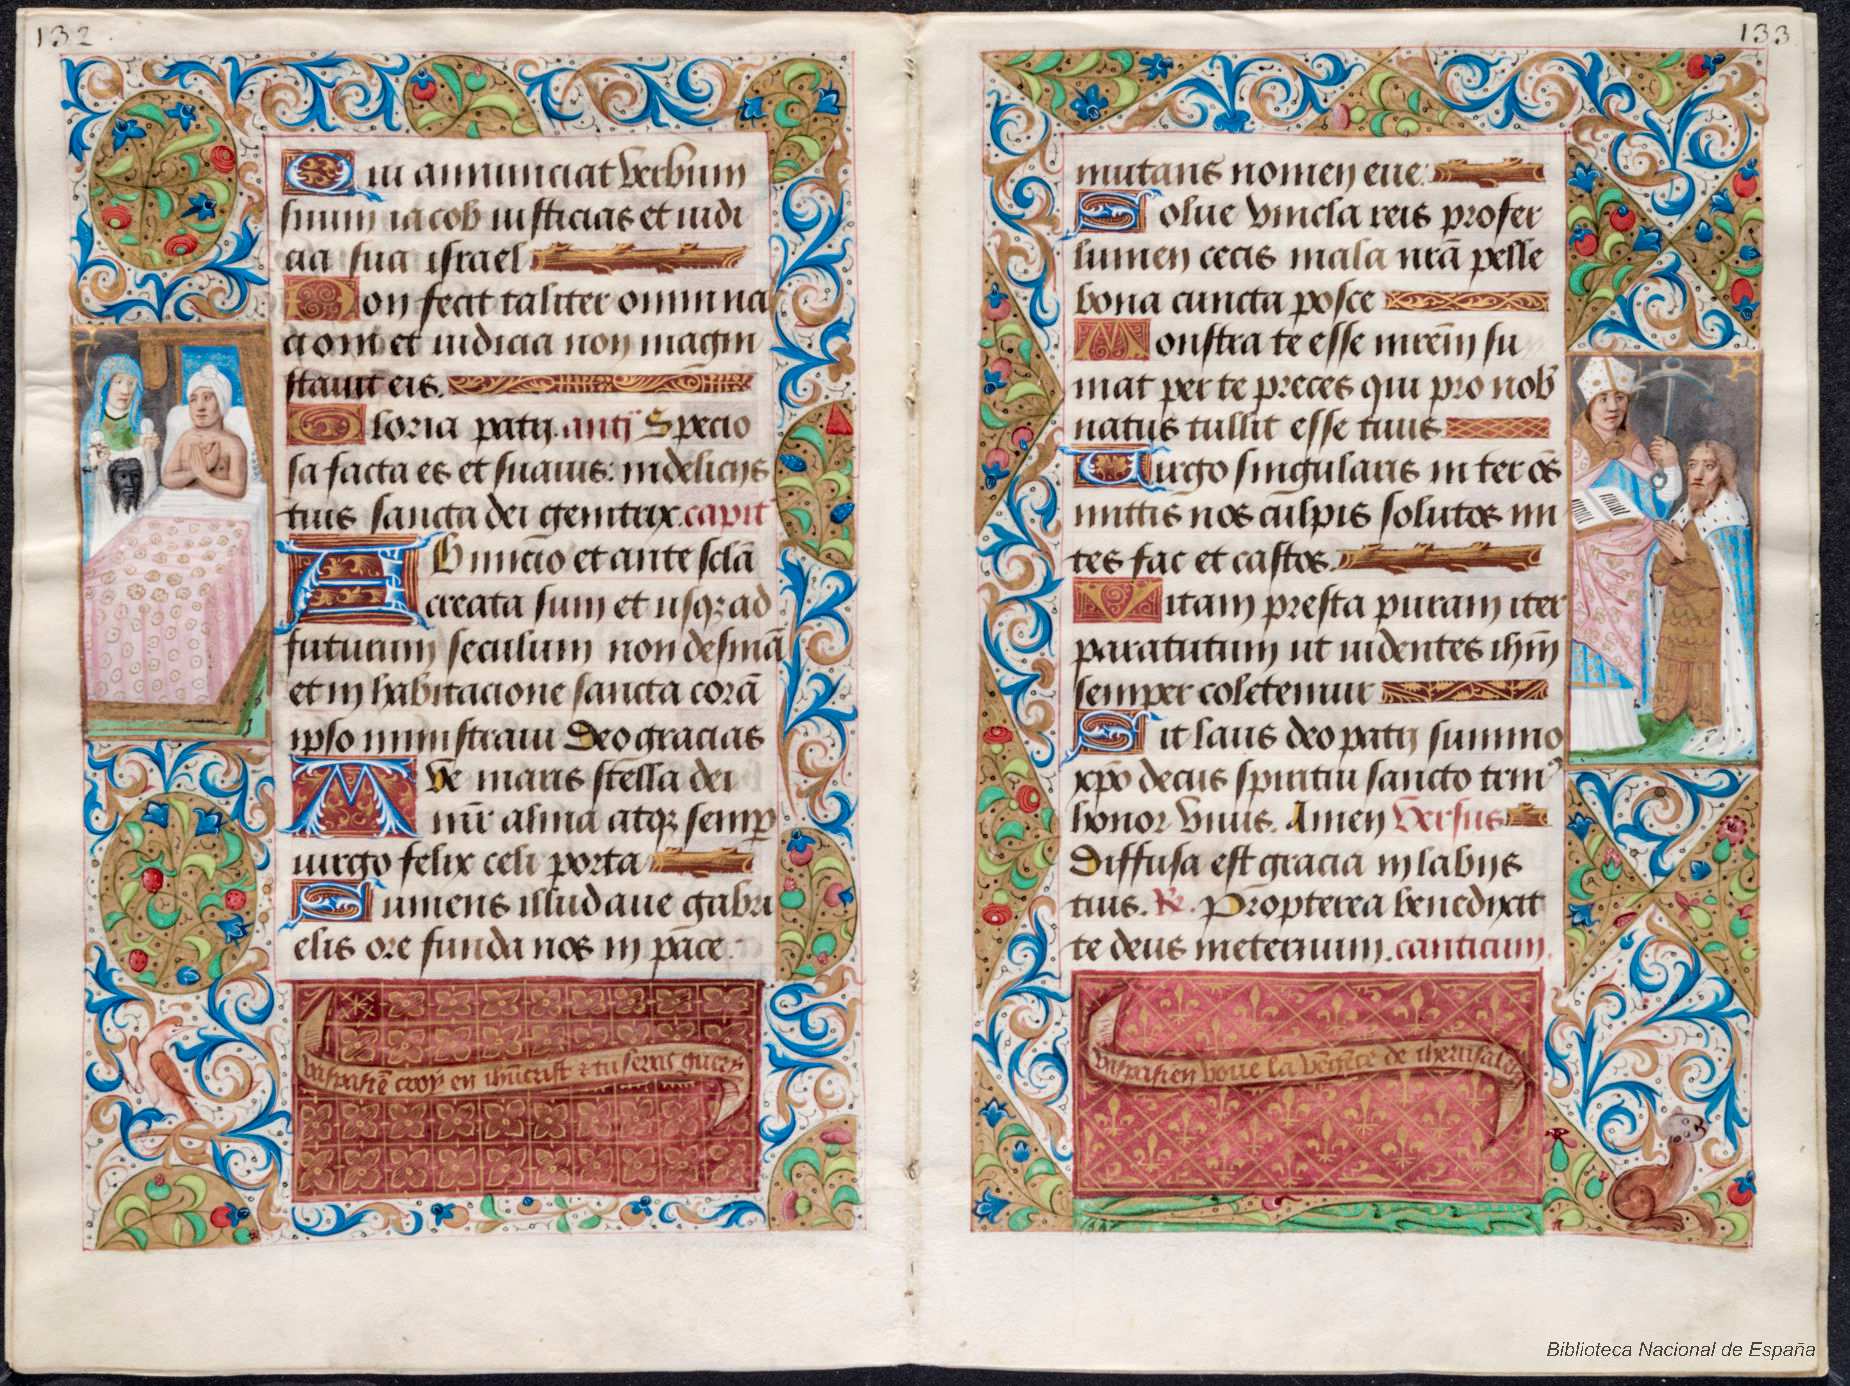 132
Qui annunciat verbum
suum iacob iusticias et iudi
cia sua israel
Non fecit taliter omni na
cioni et iudicia non magni
stauit eis.
Gloria patrj. antj Specio
sa facta es et suauis: in delicijs
tuis sancta dei genitrix. capit
AB inicio et ante sclā
creata sum et usqȝ ad
futurum seculum non desinā
et in habitacione sancta corā
ipso ministraui Deo gracias
AVe maris stella dei
mr̄ alma atqȝ semꝑ
uirgo felix celi porta
Sumens illud aue gabri
elis ore funda nos in pace
vaspasiē croy en ihūcrist & tu seras guery
133
mutans nomen eue:
Solue vincla reis profer
lumen cecis mala nrā pelle
bona cuncta posce
Monstra te esse mrēm su
mat per te preces qui pro nob
natus tullit esse tuus
Uirgo singularis inter oēs
mittis nos culpis solutos mi
tes fac et castos.
Vitam presta puram iter
para tutum ut uidentes ihm̄
semper coletemur
Sit laus deo patrj summo
xpō decus spiritui sancto trin⁹
honor vnus. Amen Versus
Diffusa est gracia in labijs
tuis. R̃. Propterea benedixit
te deus ineternum. canticum.
vaspasien voue la vēgēce de iherusalem
Biblioteca Nacional de España